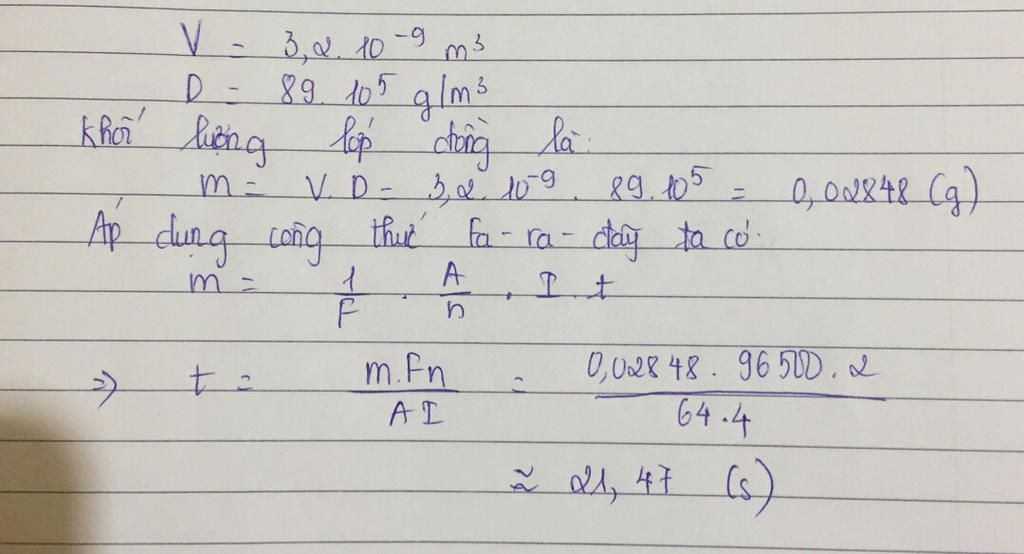 V = 3,2.10⁻⁹ m³
D = 89.10⁵ g/m³
Khối lượng lớp đồng là:
m = V.D = 3,2.10⁻⁹ . 89.10⁵ = 0,02848 (g)
Áp dụng công thức Fa-ra-đây ta có:
m = 1/F . A/n . I t
=> t = m.Fn/AI = 0,02848 . 96500 . 2/64.4
≈ 21,47 (s)